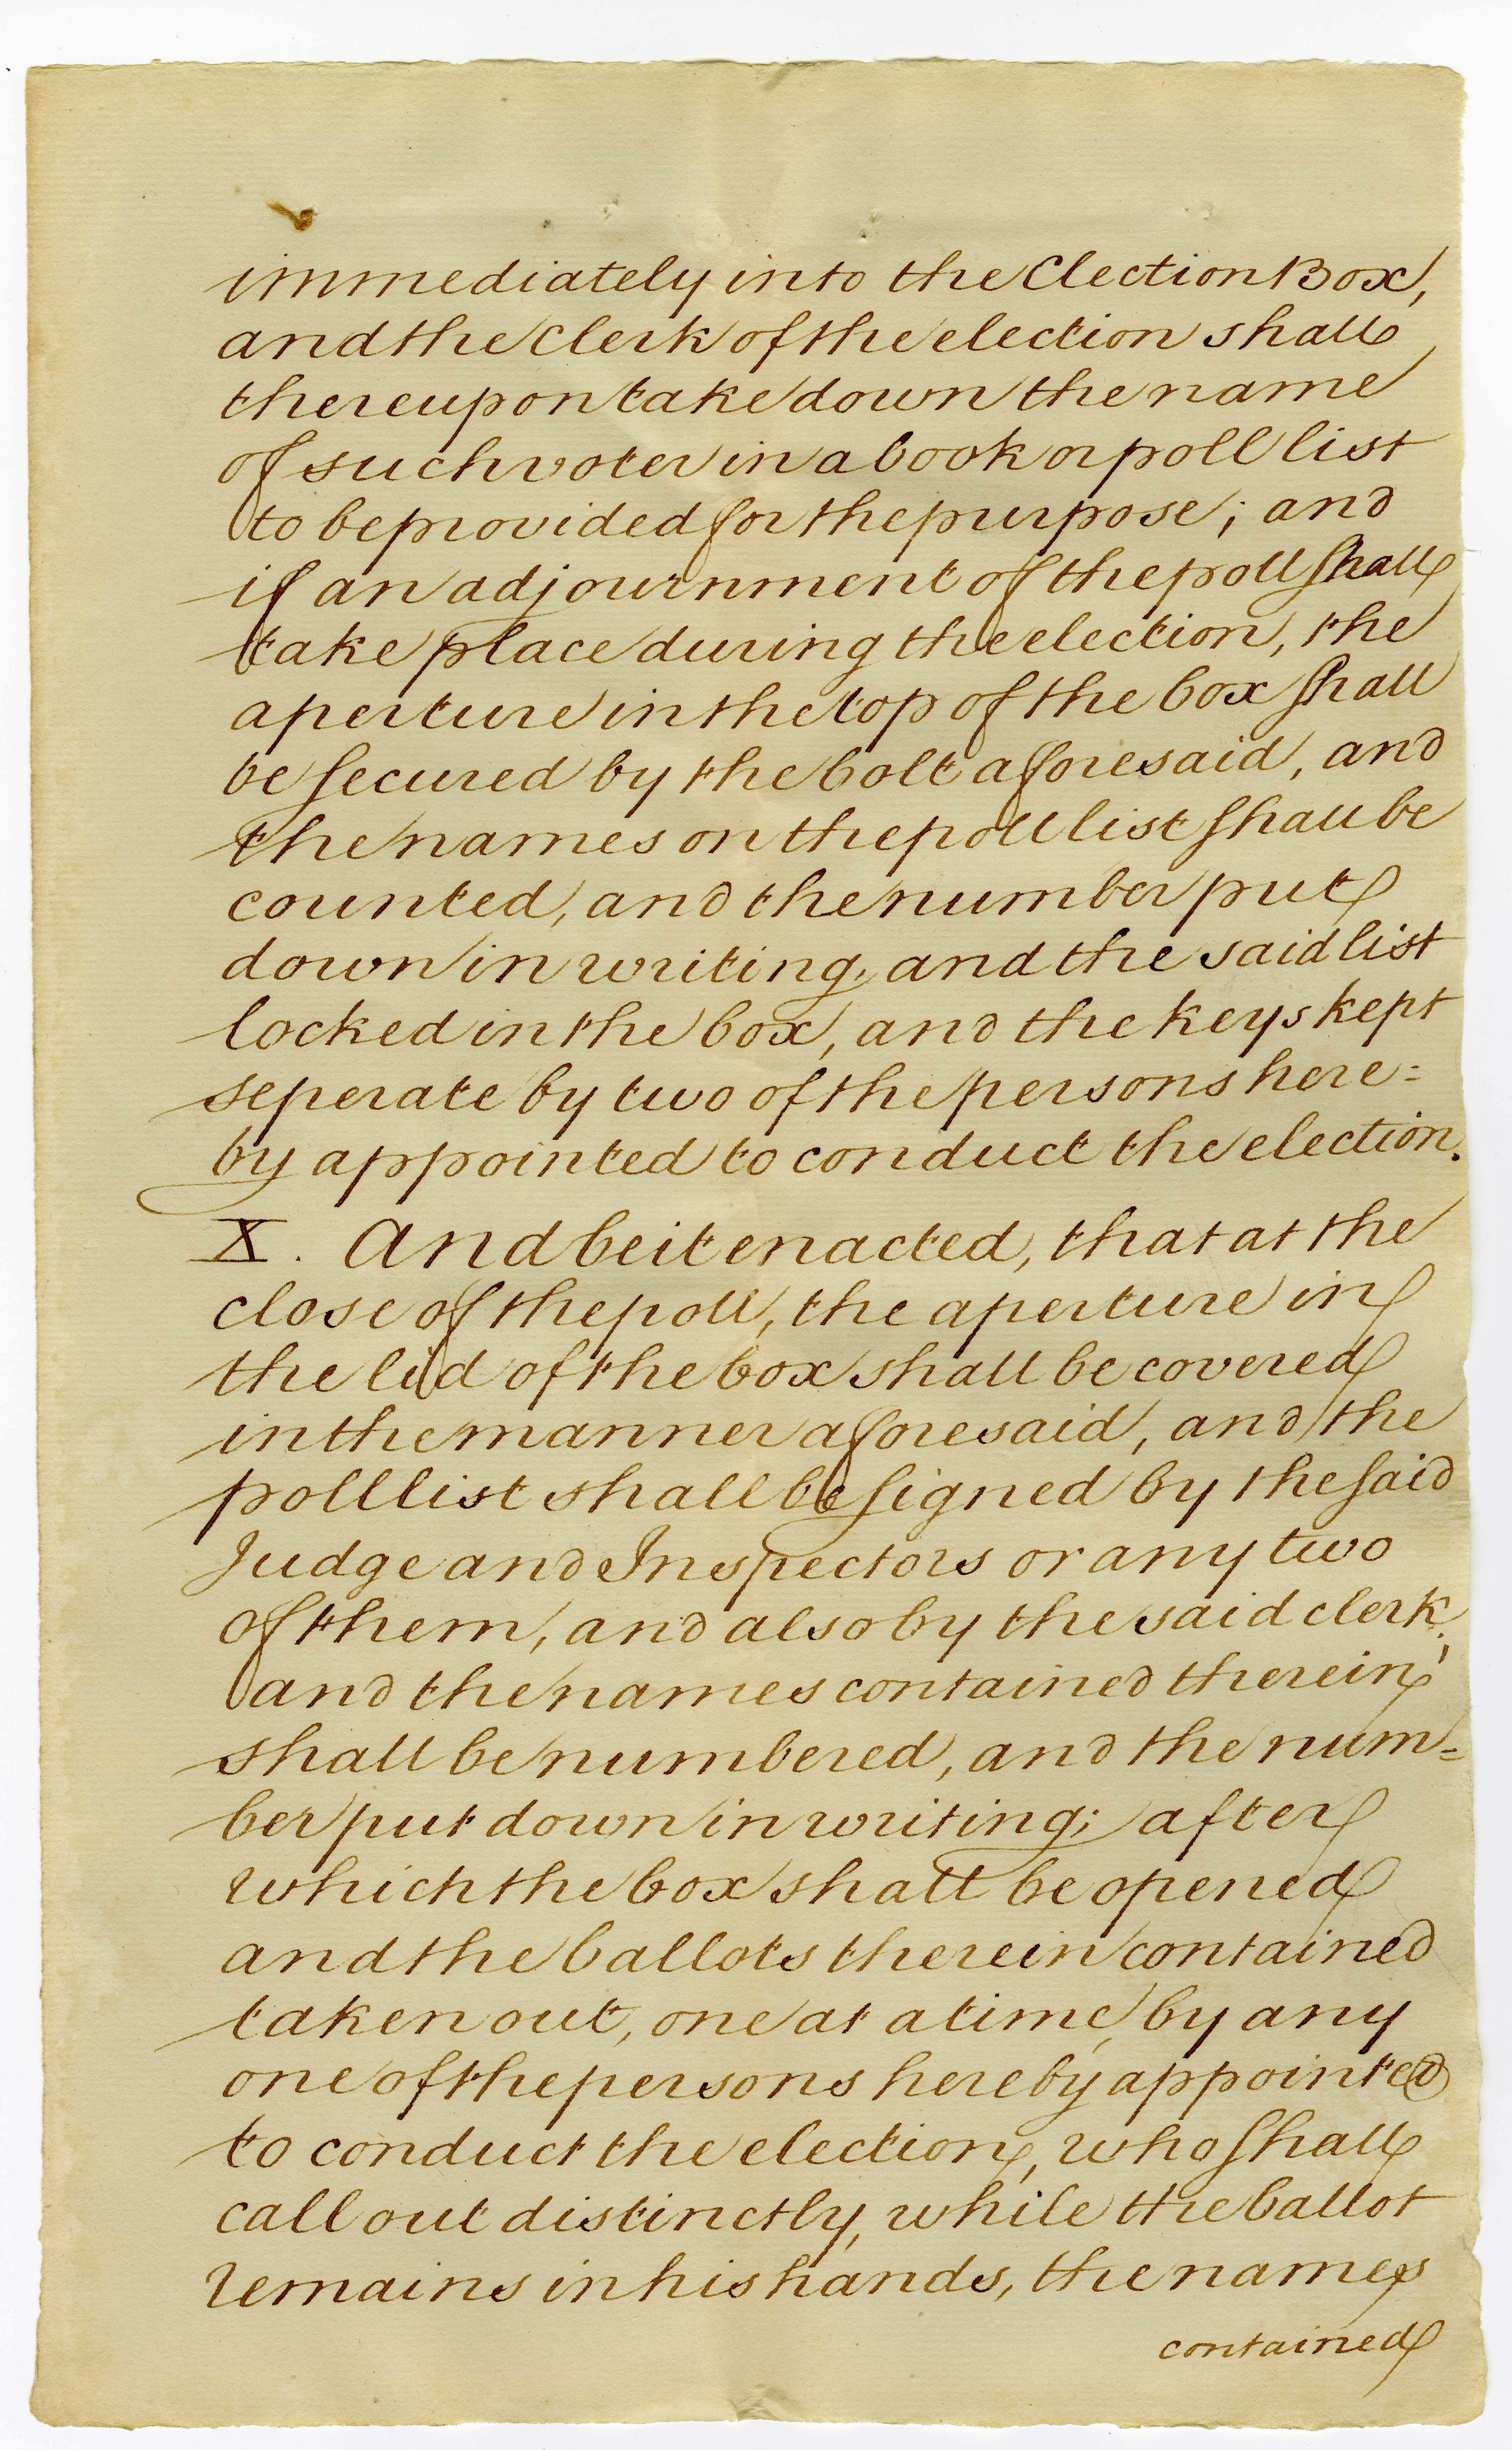 immediately into the Election Box,
and the Clerk of the election shall
thereupon take down the name
of such voter in a book or poll list
to be provided for the purpose; and
if an adjournment of the poll shall
take place during the election, the
aperture in the top of the box shall
be secured by the bolt aforesaid, and
the names on the poll list shall be
counted, and the number put
down in writing, and the said list
locked in the box, and the keys kept
seperate by two of the persons here=
by appointed to conduct the election.
X. And be it enacted, that at the
close of the poll, the aperture in
the lid of the box shall be covered
in the manner aforesaid, and the
poll list shall be signed by the said
Judge and Inspectors or any two
of them, and also by the said clerk,
and the names contained therein
shall be numbered, and the num=
ber put down in writing; after
which the box shall be opened
and the ballots therein contained
taken out, one at a time, by any
one of the persons hereby appointed
to conduct the election, who shall
call out distinctly, while the ballot
remains in his hands, the names
contained